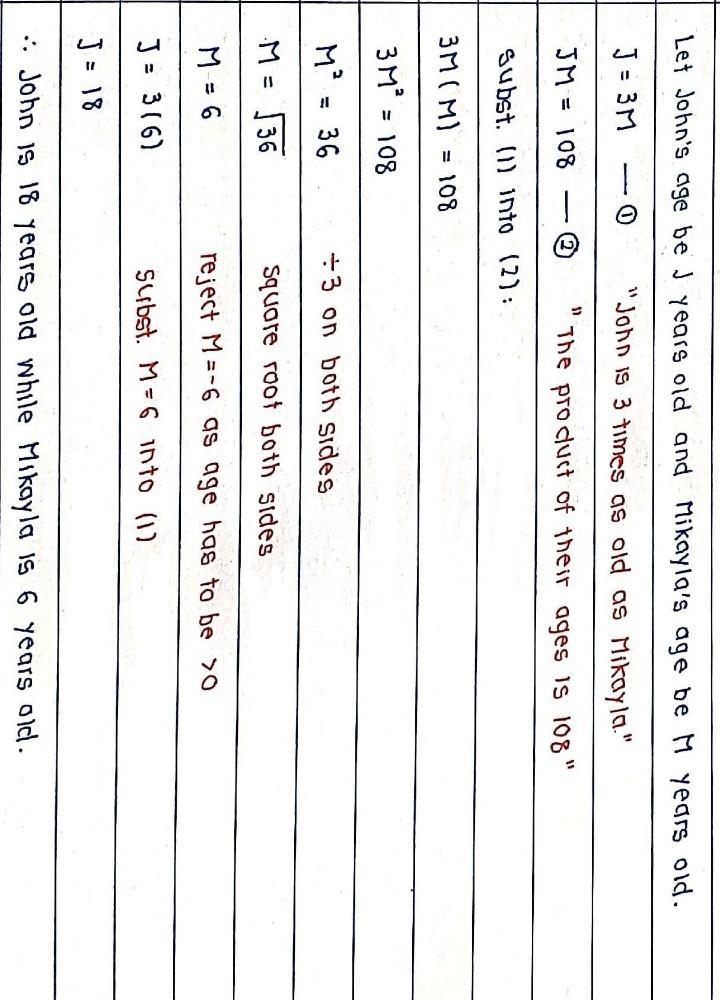 Let John's age be J years old and Mikayla's age be M years old.
J = 3M — ① "John is 3 times as old as Mikayla."
JM = 108 — ② "The product of their ages is 108"
subst. (1) into (2):
3M(M) = 108
3M² = 108
M² = 36 ÷3 on both sides
M = √36 square root both sides
M = 6 reject M=-6 as age has to be >0
J = 3(6) subst. M=6 into (1)
J = 18
∴ John is 18 years old while Mikayla is 6 years old.